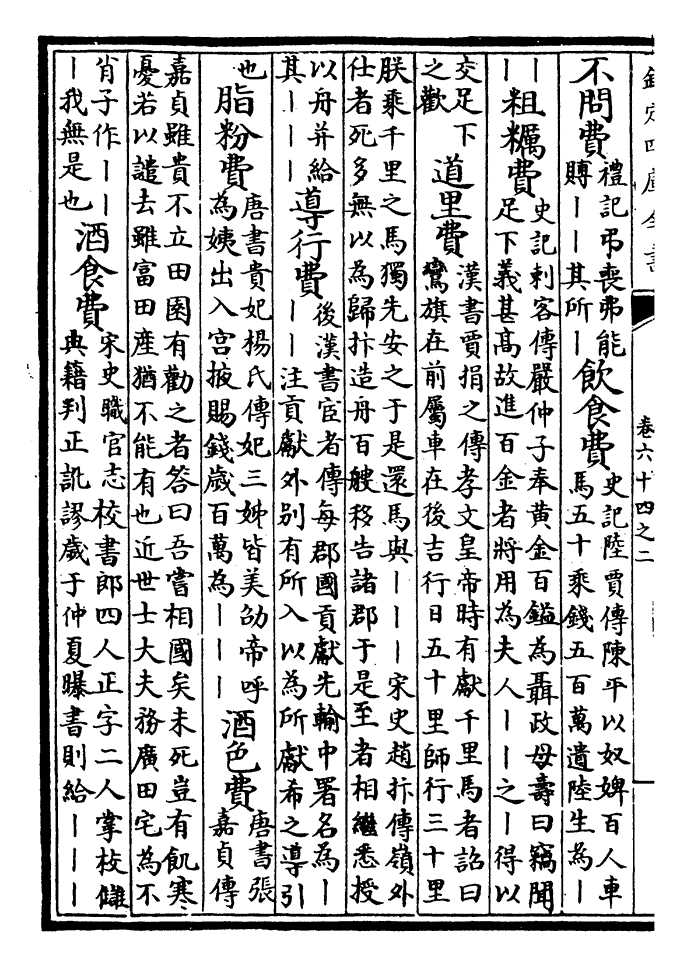 欽定四庫全書
卷六十四之二
不問費
禮記弔喪弗能
賻丨丨其所丨
飲食費
史記陸賈傳陳平以奴婢百人車
馬五十乘錢五百萬遺陸生為丨
丨
丨
粗糲費
史記刺客傳嚴仲子奉黃金百鎰為聶政母壽曰竊聞
足下義甚高故進百金者將用為夫人丨丨之丨得以
交足下
之歡
道里費
漢書賈捐之傳孝文皇帝時有獻千里馬者詔曰
鸞旗在前屬車在後吉行日五十里師行三十里
朕乘千里之馬獨先安之于是還馬與丨丨丨宋史趙抃傳嶺外
仕者死多無以為歸抃造舟百艘移告諸郡于是至者相繼悉授
以舟并給
其丨丨丨
導行費
後漢書宦者傳每郡國貢獻先輸中署名為丨
丨丨注貢獻外别有所入以為所獻希之導引
也
脂粉費
唐書貴妃楊氏傳妃三姊皆美劭帝呼
為姨出入宫掖賜錢歲百萬為丨丨丨
酒色費
唐書張
嘉貞傳
嘉貞雖貴不立田園有勸之者答曰吾嘗相國矣未死豈有飢寒
憂若以譴去雖富田産猶不能有也近世士大夫務廣田宅為不
肖子作丨丨
丨我無是也
酒食費
宋史職官志校書郎四人正字二人掌校讎
典籍判正訛謬歲于仲夏曝書則給丨丨丨